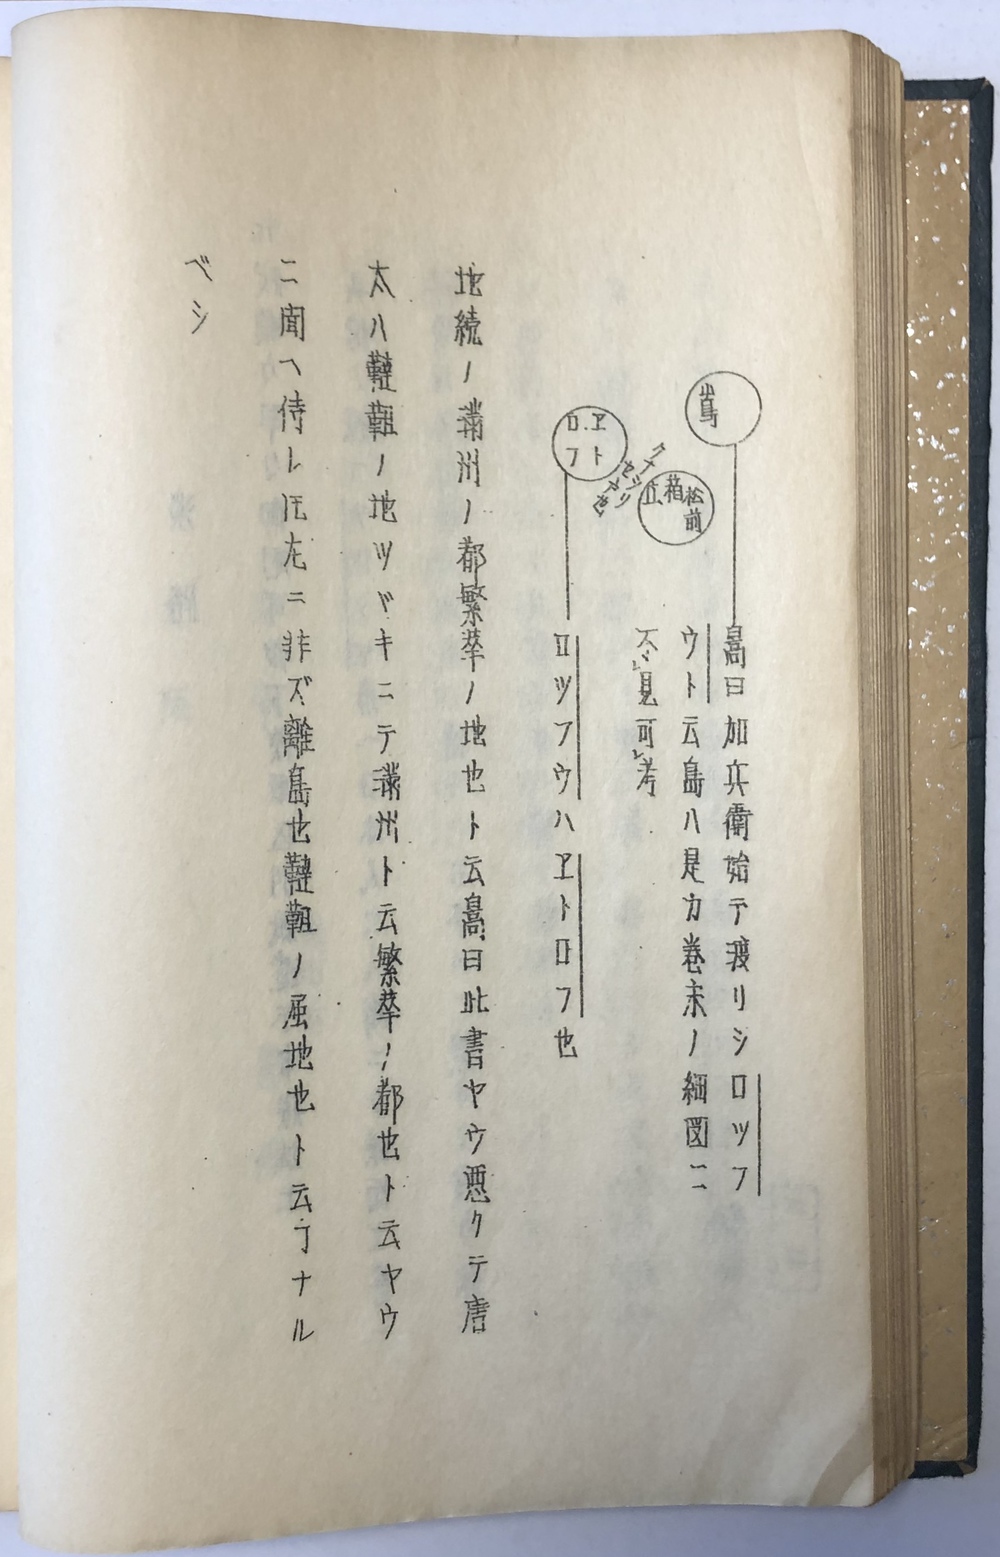 嶌
松前
箱立
クナシリ
ヱトロフ
嵩曰加兵衛始テ渡リシロツフ
ウト云島ハ是カ巻末ノ細図ニ
不レ見可レ考
ロツフウハヱトロフ也
地続ノ満州ノ都繁華ノ地也ト云嵩曰此書ヤウ悪クテ唐
太ハ韃靼ノ地ツヾキニテ満州ト云繁華ノ都也ト云ヤウ
ニ聞ヘ侍レ𪜈左ニ非ズ離島也韃靼ノ属地也ト云ヿナル
ベシ